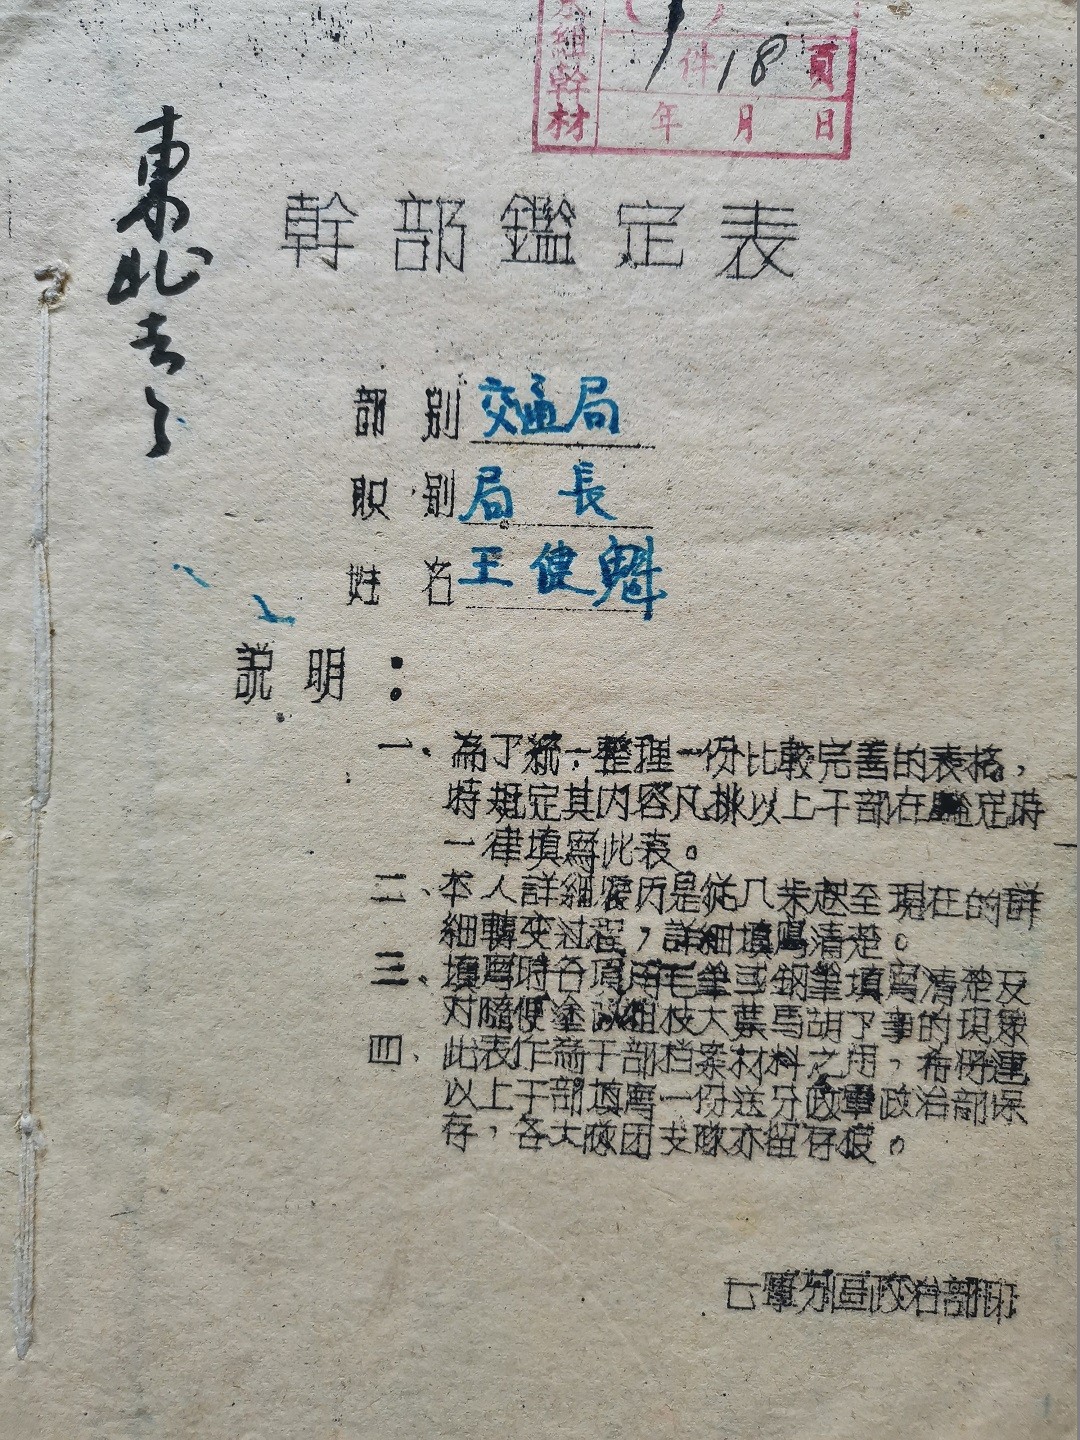 組幹材
件 18 頁
年 月 日
東北去了
幹部鑑定表
部别 交通局
职别 局長
姓名 王健魁
説明：
一、為了統一整理一份比較完善的表格，
特規定其内容凡排以上干部在鑑定時
一律填寫此表。
二、本人詳細履历是從几歲起至現在的詳
細轉变过程，詳細填寫清楚。
三、填寫時各項用毛筆或鋼筆填寫清楚反
对隨便塗改粗枝大葉馬胡了事的現象
四、此表作為干部档案材料之用，希將連
以上干部填寫一份送分政軍政治部保
存，各大隊团支隊亦留存檔。
七軍分區政治部印